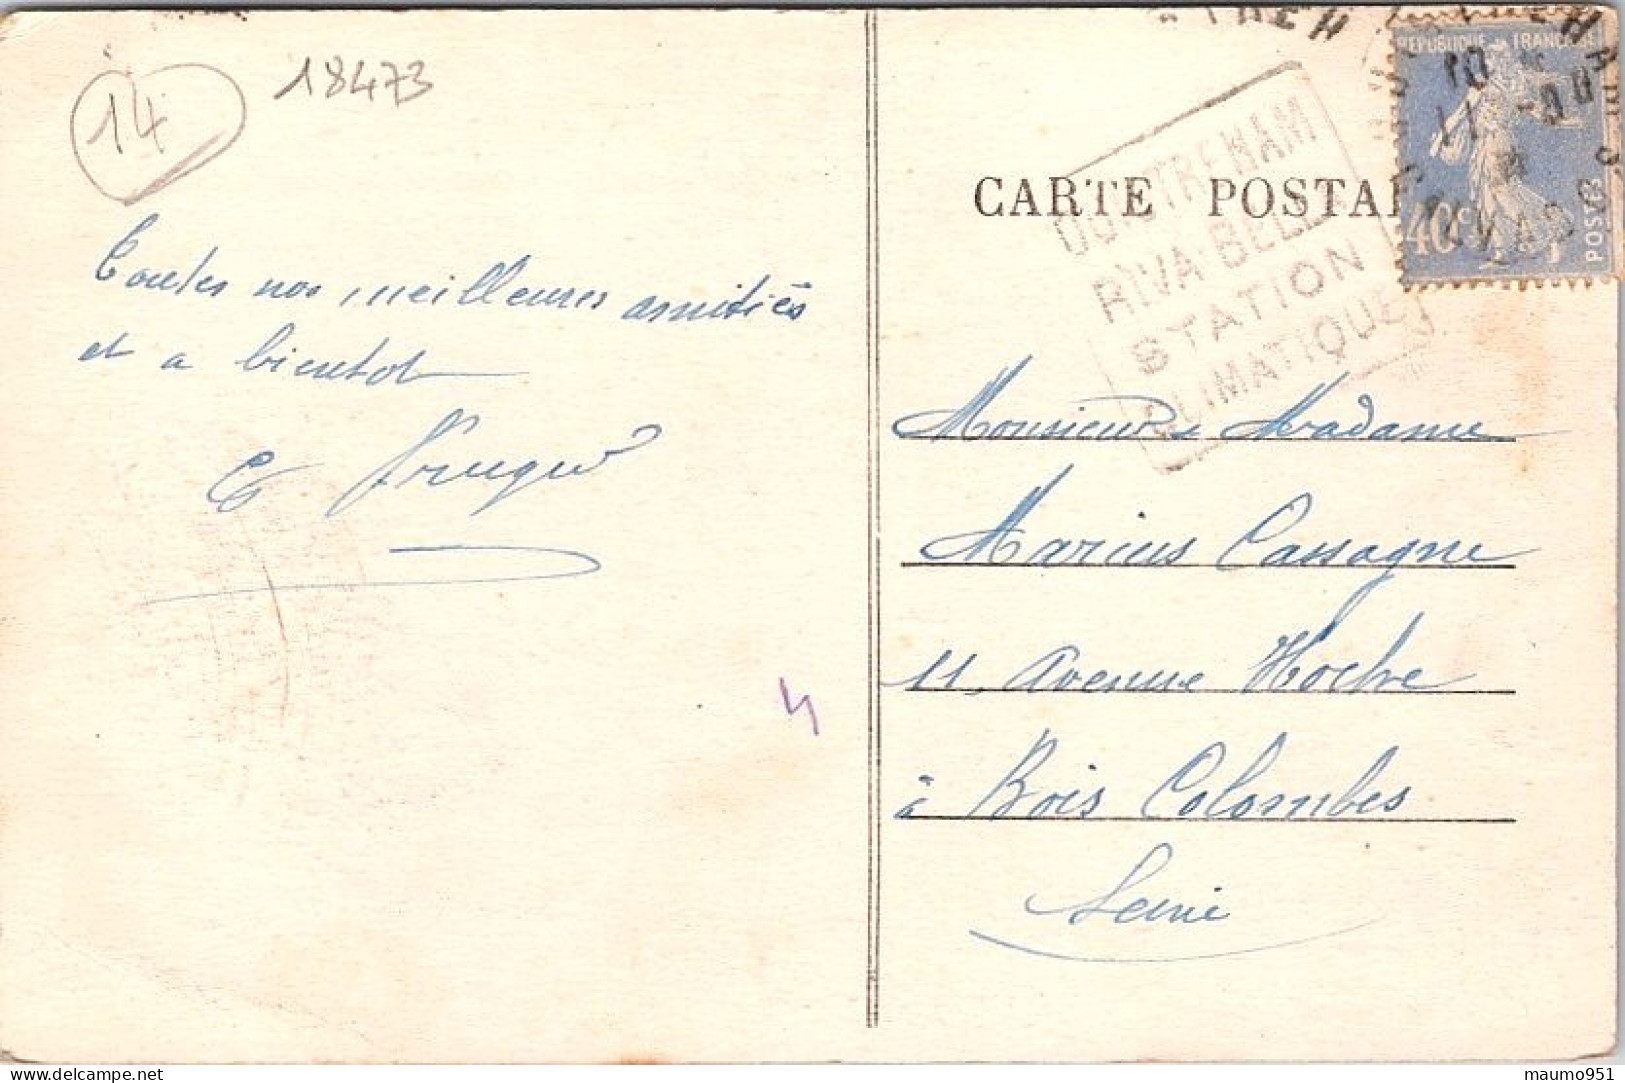 14
18473
Toutes nos meilleures amitiés
et a bientot
CARTE POSTAL
OUISTREHAM
RIVA-BELLA
STATION
CLIMATIQUE
REPUBLIQUE FRANCAISE
40c
POSTES
CALVADOS
Monsieur & Madame
Marius Cassagne
11, Avenue Hoche
à Bois Colombes
Seine
maumo951